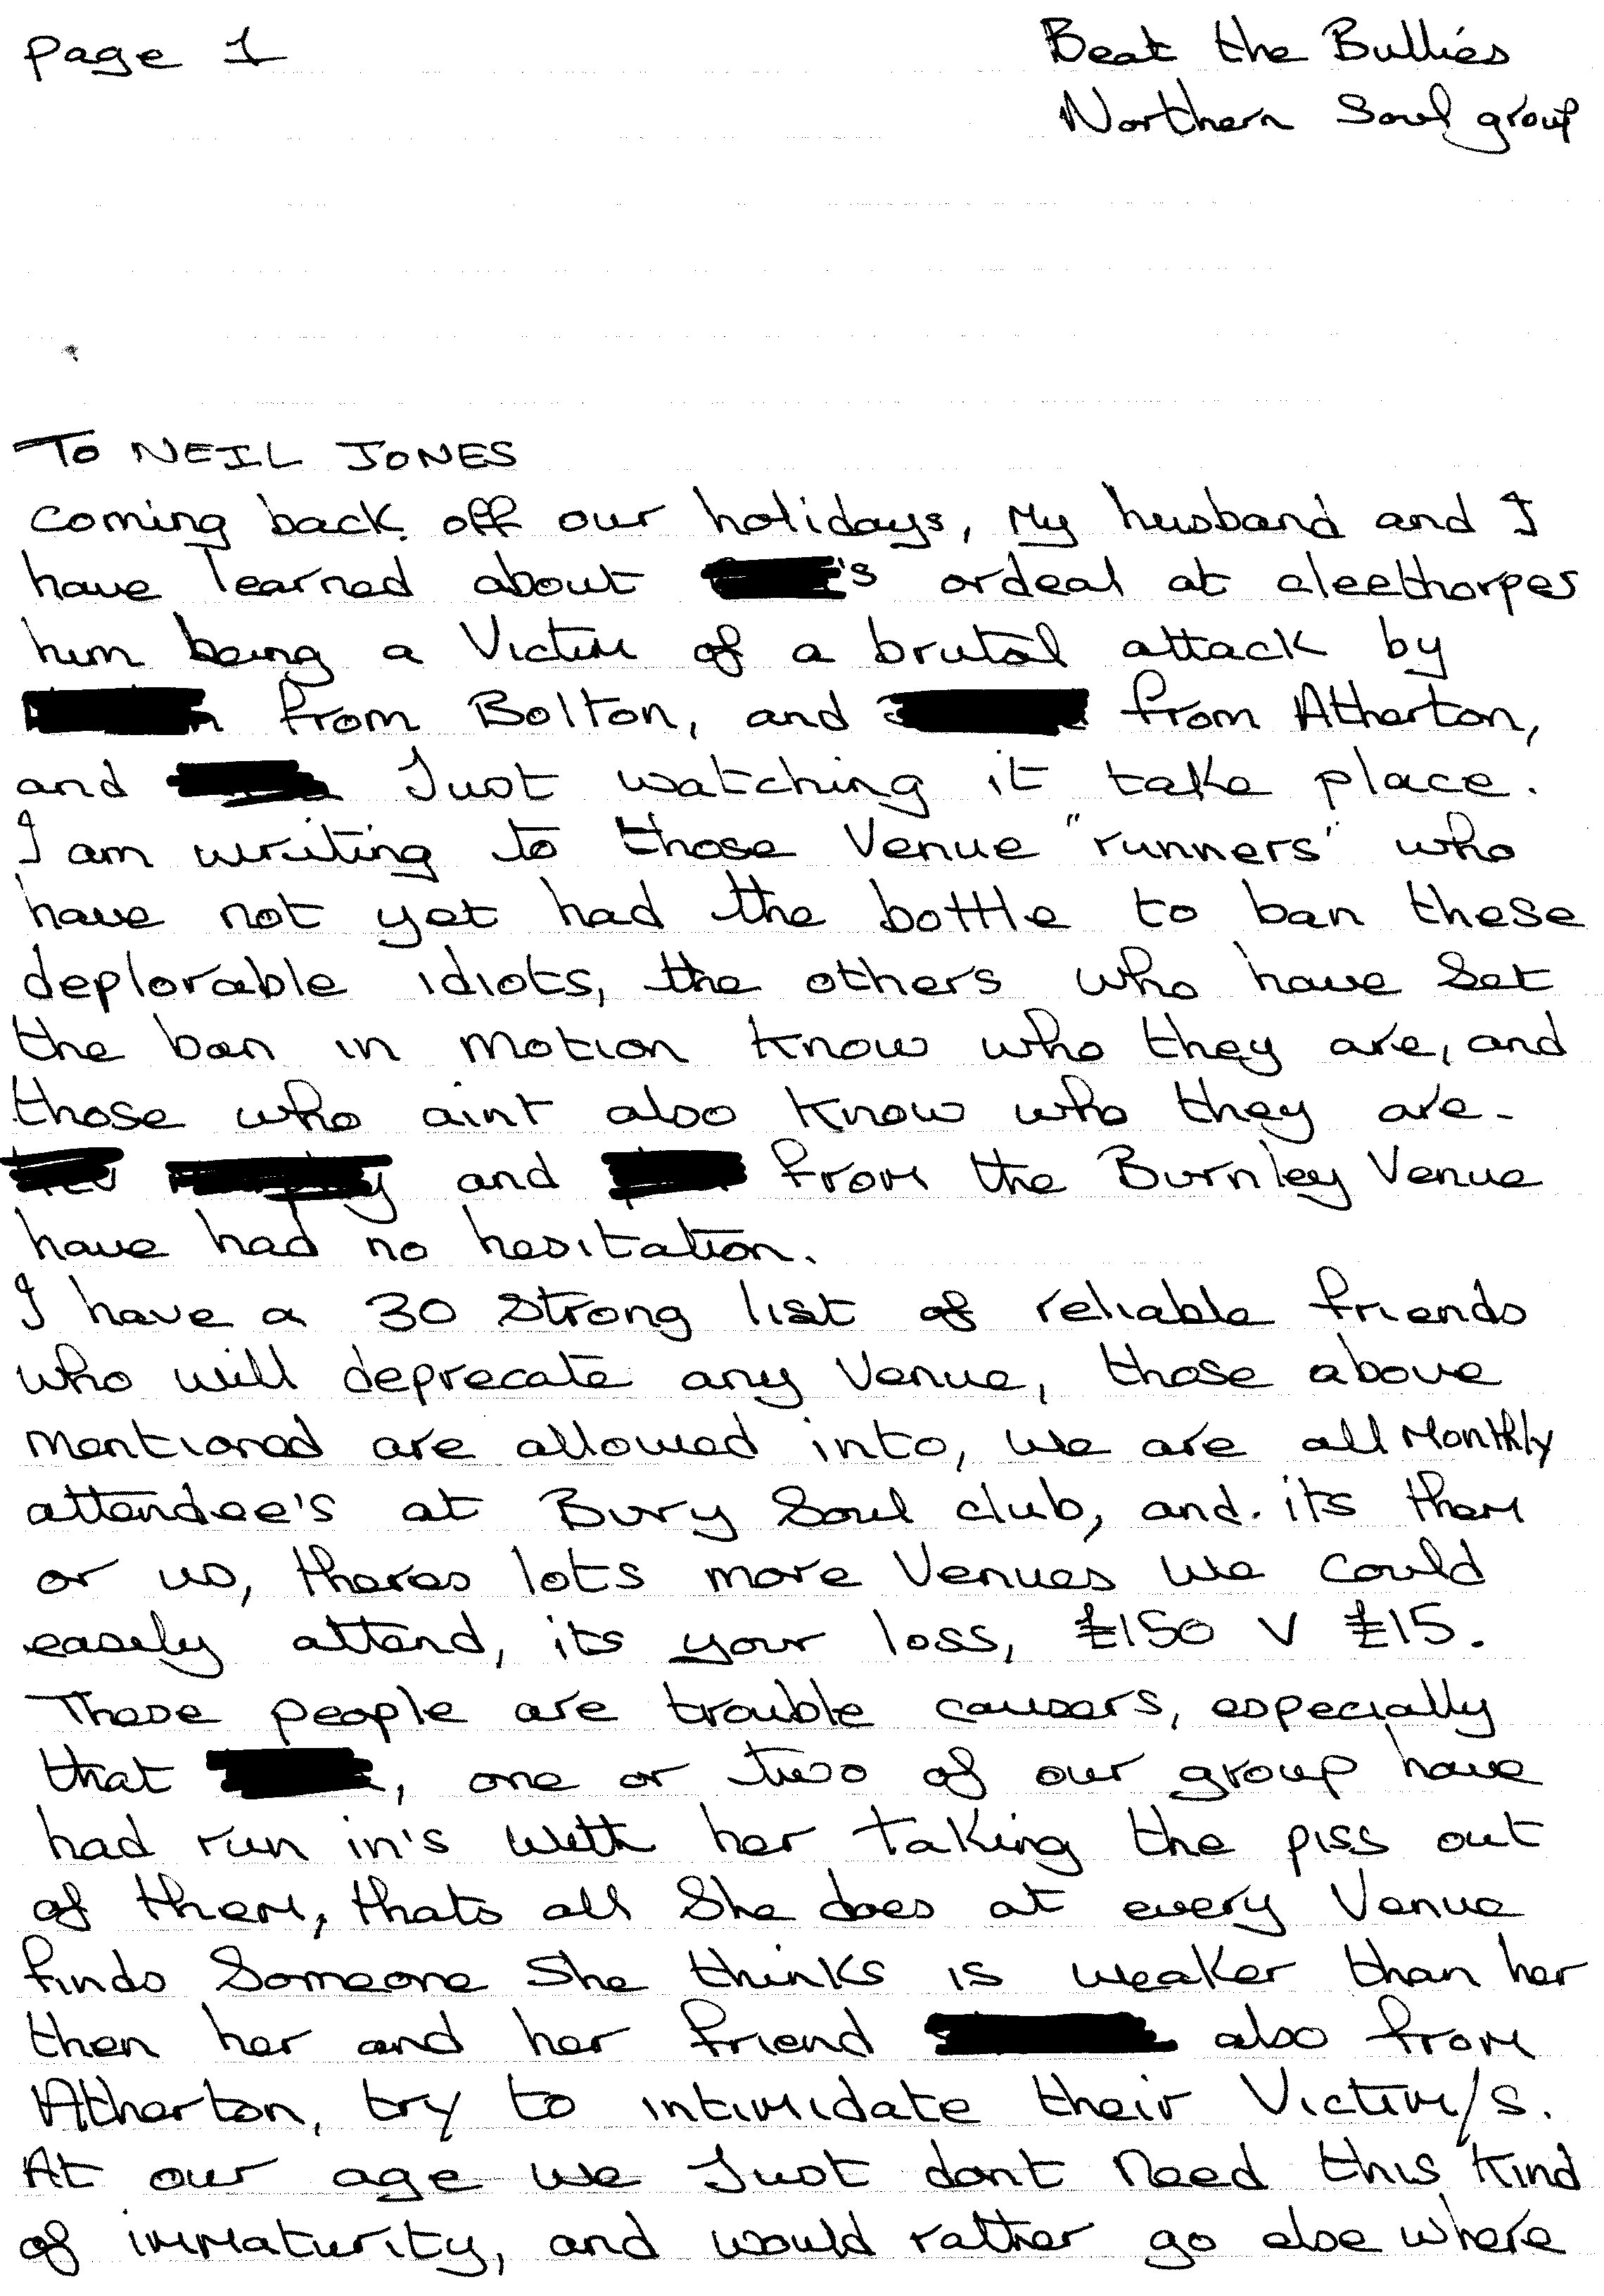 Page 1
Beat the Bullies
Northern Soul group
To NEIL JONES
coming back off our holidays, My husband and I
have learned about 's ordeal at cleethorpes
him being a Victim of a brutal attack by
from Bolton, and from Atherton,
and Just watching it take place.
I am writing to those Venue "runners" who
have not yet had the bottle to ban these
deplorable idiots, the others who have Set
the ban in motion know who they are, and
those who aint also know who they are.
and from the Burnley Venue
have had no hesitation.
I have a 30 Strong list of reliable friends
who will deprecate any Venue, those above
mentioned are allowed into, we are all Monthly
attendee's at Bury Soul club, and. its them
or us, theres lots more Venues we could
easily attend, its your loss, £150 V £15.
These people are trouble causers, especially
that , one or two of our group have
had run in's with her taking the piss out
of them, thats all She does at every Venue
finds Someone She thinks is weaker than her
then her and her friend also from
Atherton, try to intimidate their Victim/s.
At our age we Just dont Need this kind
of immaturity, and would rather go else where